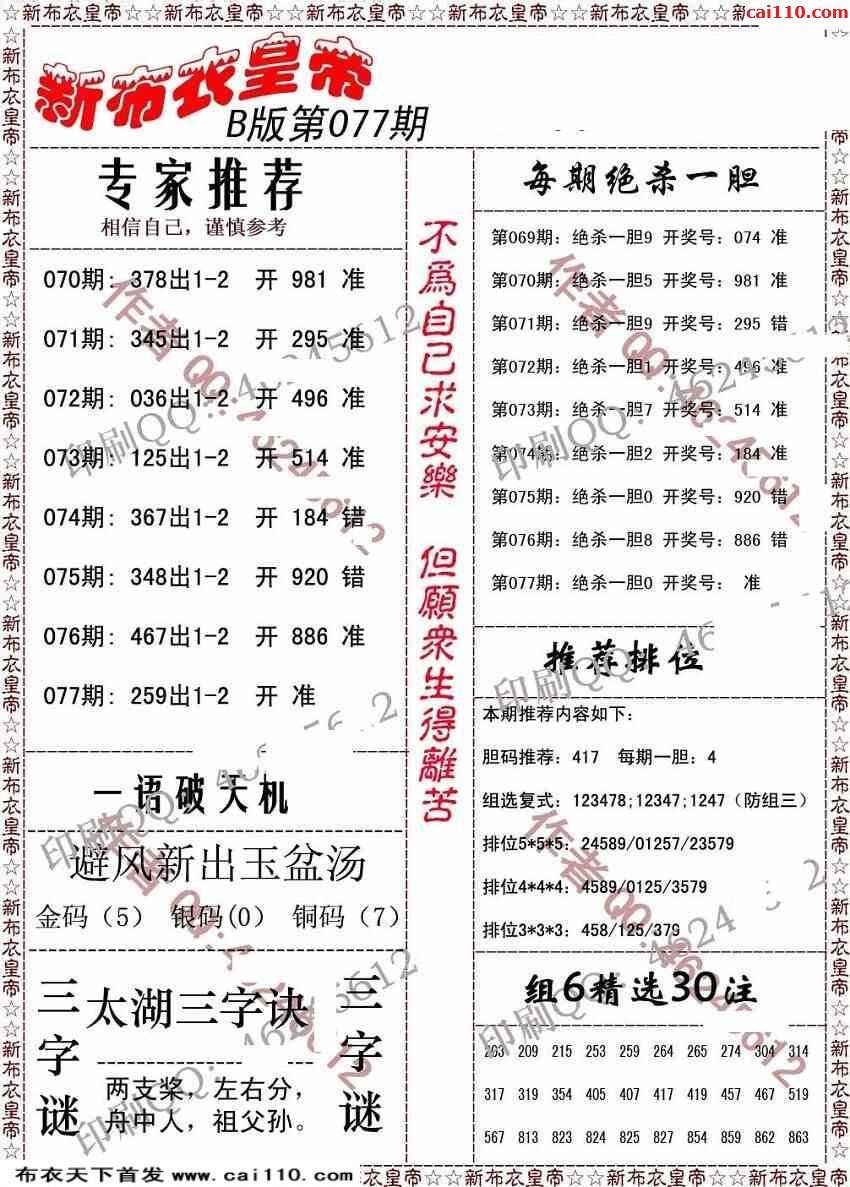 ☆新布衣皇帝☆☆新布衣皇帝☆☆新布衣皇帝☆☆新布衣皇帝☆☆新布衣皇帝☆☆新
cai110.com
新布衣皇帝
B版第077期
专家推荐
相信自己，谨慎参考
070期: 378出1-2 开 981 准
071期: 345出1-2 开 295 准
072期: 036出1-2 开 496 准
073期: 125出1-2 开 514 准
074期: 367出1-2 开 184 错
075期: 348出1-2 开 920 错
076期: 467出1-2 开 886 准
077期: 259出1-2 开 准
一语破天机
避风新出玉盆汤
金码（5） 银码(0) 铜码（7）
三字谜
太湖三字诀
两支桨，左右分，
舟中人，祖父孙。
三字谜
不為自己求安樂 但願衆生得離苦
每期绝杀一胆
第069期: 绝杀一胆9 开奖号: 074 准
第070期: 绝杀一胆5 开奖号: 981 准
第071期: 绝杀一胆9 开奖号: 295 错
第072期: 绝杀一胆1 开奖号: 496 准
第073期: 绝杀一胆7 开奖号: 514 准
第074期: 绝杀一胆2 开奖号: 184 准
第075期: 绝杀一胆0 开奖号: 920 错
第076期: 绝杀一胆8 开奖号: 886 错
第077期: 绝杀一胆0 开奖号: 准
推荐排位
本期推荐内容如下:
胆码推荐: 417 每期一胆: 4
组选复式: 123478;12347;1247（防组三）
排位5*5*5: 24589/01257/23579
排位4*4*4: 4589/0125/3579
排位3*3*3: 458/125/379
组6精选30注
203 209 215 253 259 264 265 274 304 314
317 319 354 405 407 417 419 457 467 519
567 813 823 824 825 827 854 859 862 863
布衣天下首发 www.cai110.com
☆新布衣皇帝☆☆新布衣皇帝☆☆新布衣皇帝☆☆新布衣皇帝☆
作者QQ:
印刷QQ: